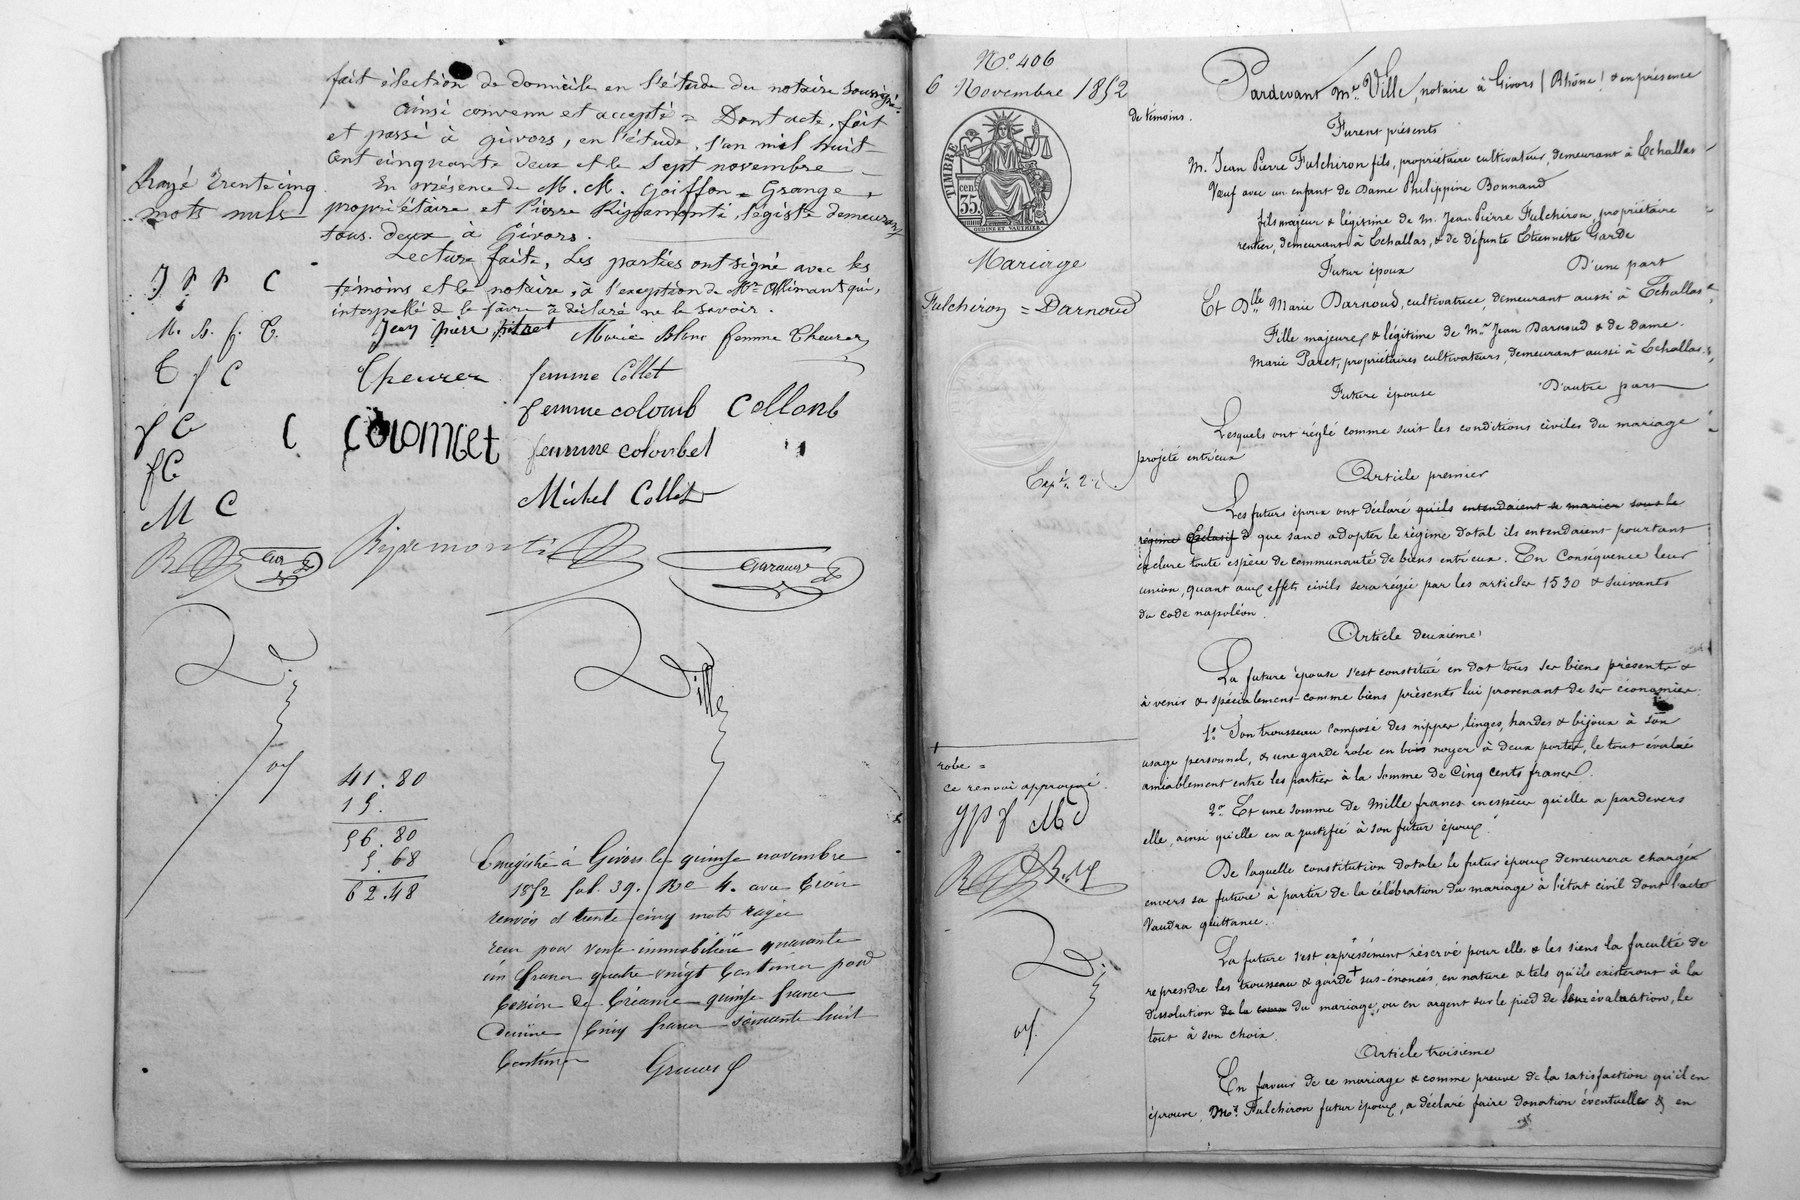 fait élection de domicile en l'étude du notaire soussigné.
Ainsi convenu et accepté = Dont acte, fait
et passé à givors, en l'étude, l'an mil huit
Cent cinquante deux et le sept novembre
En présence de M. M. Goiffon = Grange,
propriétaire et Pierre Ripamonti, légiste demeurant
tous deux à Givors.
Lecture faite, Les parties ont signé avec les
témoins et le notaire, à l'exception de Mr qui,
interpellé de le faire a déclaré ne le savoir.
Rayé trente cinq
mots nuls
J P P C
M. B. f. C.
C f C
f C C
f C
M C
Jean piere pitrat Marie Blanc femme Cheurer
Cheurer femme Collet
femme colomb Collonb
COLOMBET femme colombel
Michel Collet
Ripamonti
Ville
41.80
15.
56.80
5.68
62.48
Enregistré à Givors le quinze novembre
1852 fol. 39. Ro 4. avec trois
renvois et trente cinq mots rayés
reçu pour vente immobilière quarante
un francs quatre vingt Centimes pour
Cession de Créance quinze francs
Décime Cinq francs soixante huit
Centimes
N° 406
6 Novembre 1852
TIMBRE
35 cen.
OUDINE ET VAUTHIER
Mariage
Fulchiron = Darnoud
robe =
ce renvoi approuvé.
JPf MD
Pardevant Me Ville, notaire à Givors (Rhône) & en présence
de témoins.
Furent présents
M. Jean Pierre Fulchiron fils, propriétaire cultivateur, demeurant à Echallas
Veuf avec un enfant de Dame Philippine Bonnand
fils majeur & légitime de M. Jean Pierre Fulchiron, propriétaire
rentier, demeurant à Echallas, & de défunte Etiennette Garde
Futur époux D'une part
Et Dlle Marie Darnoud, cultivatrice, demeurant aussi à Echallas
Fille majeure & légitime de Mr Jean Darnoud & de Dame
Marie Paret, propriétaires cultivateurs, demeurant aussi à Echallas
Future épouse D'autre part
Lesquels ont réglé comme suit les conditions civiles du mariage
projeté entr'eux
Article premier
Les futurs époux ont déclaré qu'ils entendaient se marier sous le
régime Exclusif d que sans adopter le régime dotal ils entendaient pourtant
exclure toute espèce de communauté de biens entr'eux. En Conséquence leur
union, quant aux effets civils sera régie par les articles 1530 & suivants
du code napoléon.
Article deuxième
La future épouse s'est constitué en dot tous ses biens présents &
à venir & spécialement comme biens présents lui provenant de ses économies
1° Son trousseau composé des nippes, linges, hardes & bijoux à son
usage personnel, & une garde robe en bois noyer à deux portes, le tout évalué
amiablement entre les parties à la somme de Cinq cents francs.
2° Et une somme de Mille francs en espèces qu'elle a pardevers
elle, ainsi qu'elle en a justifié à son futur époux.
De laquelle constitution dotale le futur époux demeurera chargé
envers sa future à partir de la célébration du mariage à l'état civil dont l'acte
Vaudra quittance.
La future s'est expressément réservé pour elle & les siens la faculté de
reprendre les trousseau & garde + sus-énoncés, en nature & tels qu'ils existeront à la
dissolution de la comm du mariage, ou en argent sur le pied de leur évaluation, le
tout à son choix.
Article troisième
En faveur de ce mariage & comme preuve de la satisfaction qu'il en
éprouve, Mr Fulchiron futur époux, a déclaré faire donation éventuelle & en